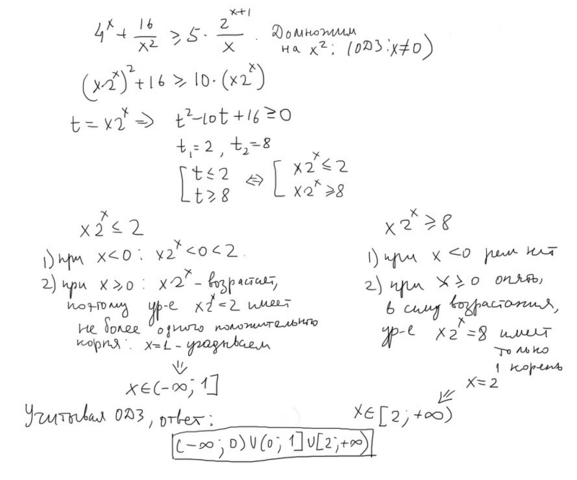 4^x + 16/x² ≥ 5 · 2^(x+1)/x. Домножим на x²: (ОДЗ: x≠0)
(x·2^x)² + 16 ≥ 10·(x2^x)
t = x2^x ⇒ t² - 10t + 16 ≥ 0
t₁ = 2, t₂ = 8
[ t ≤ 2 ⇔ [ x2^x ≤ 2
[ t ≥ 8 [ x2^x ≥ 8
x2^x ≤ 2
1) при x<0: x2^x<0<2.
2) при x≥0: x·2^x - возрастает,
поэтому ур-е x2^x=2 имеет
не более одного положительного
корня: x=1 - угадываем
⇓
x∈(-∞; 1]
x2^x ≥ 8
1) при x<0 реш нет
2) при x≥0 опять,
в силу возрастания,
ур-е x2^x=8 имеет
только
1 корень
x=2
⇙
x∈[2; +∞)
Учитывая ОДЗ, ответ:
(-∞; 0)∪(0; 1]∪[2; +∞)